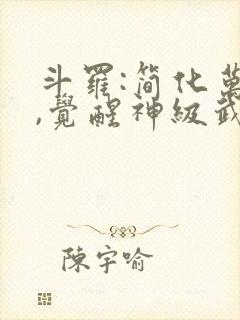 斗羅:简化萬
,覺醒神級武
陳宇喻